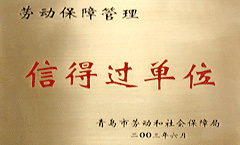 劳动保障管理
信得过单位
青岛市劳动和社会保障局
二00三年六月